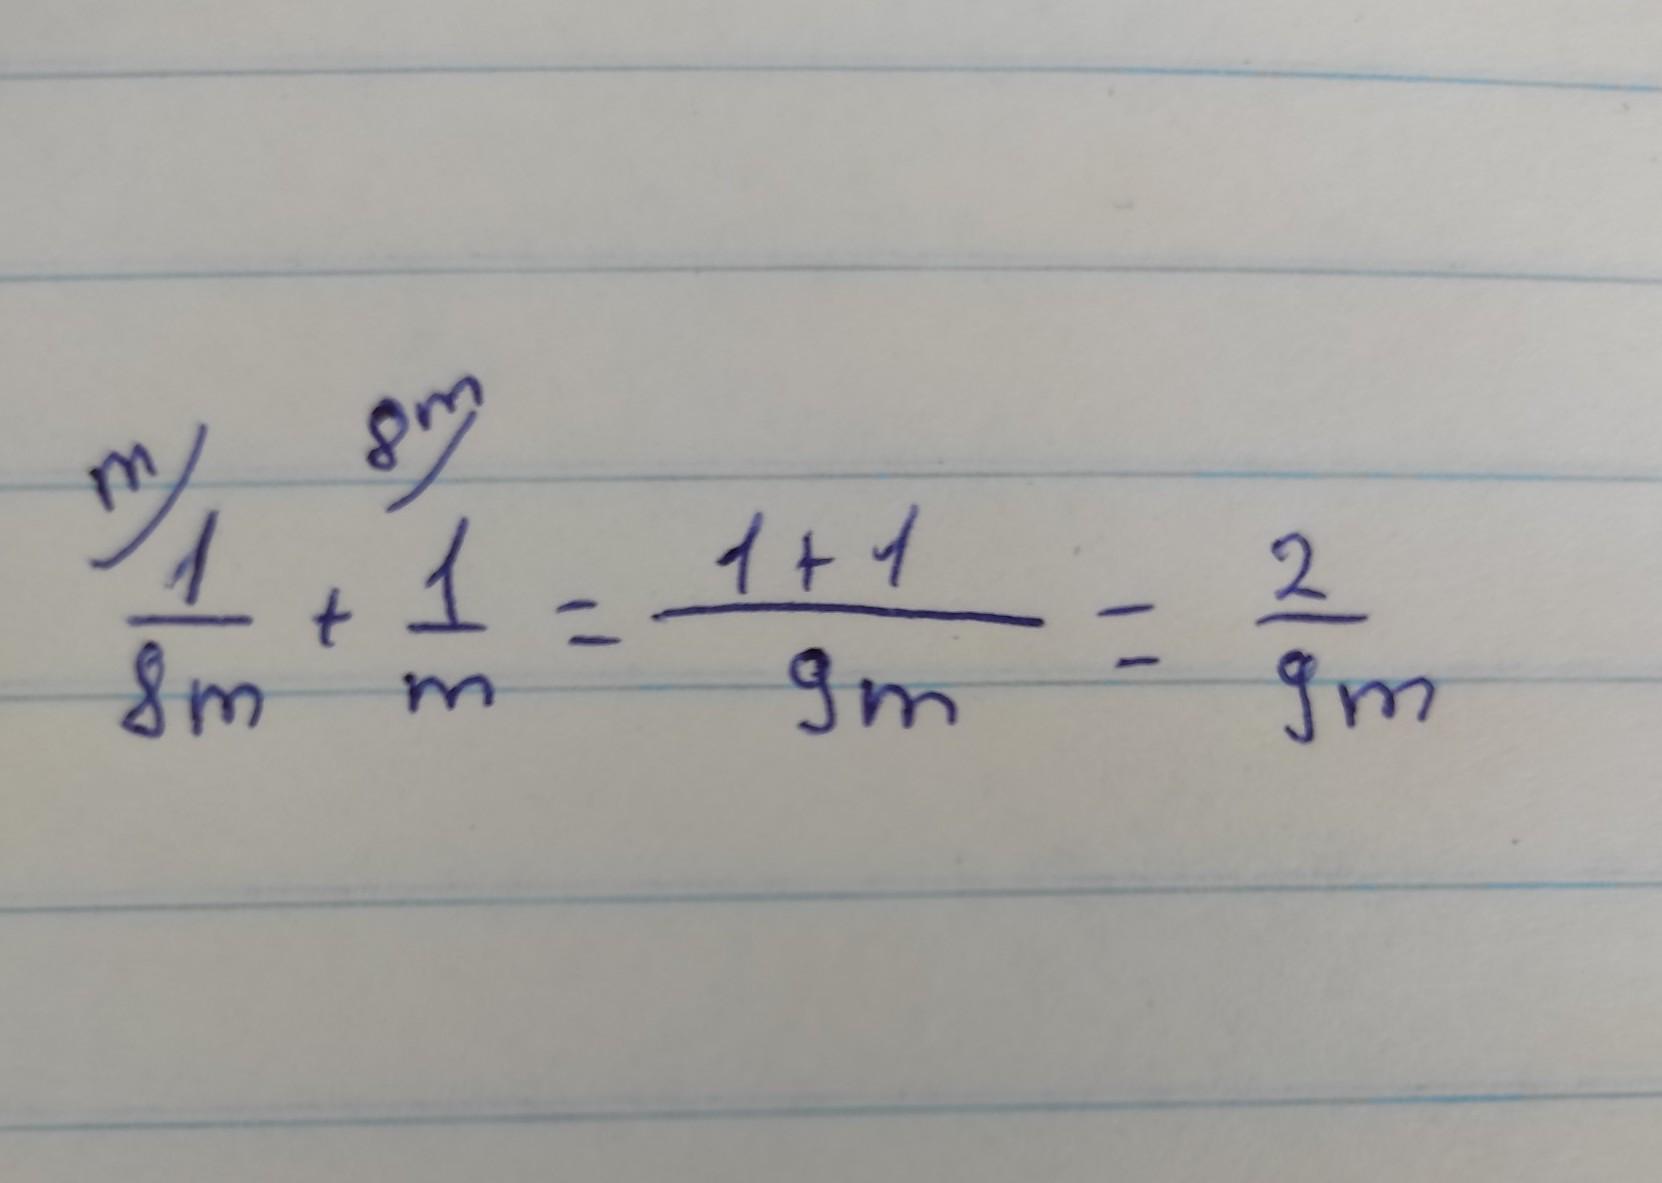 m/ 8m/
1/8m + 1/m = 1+1/9m = 2/9m